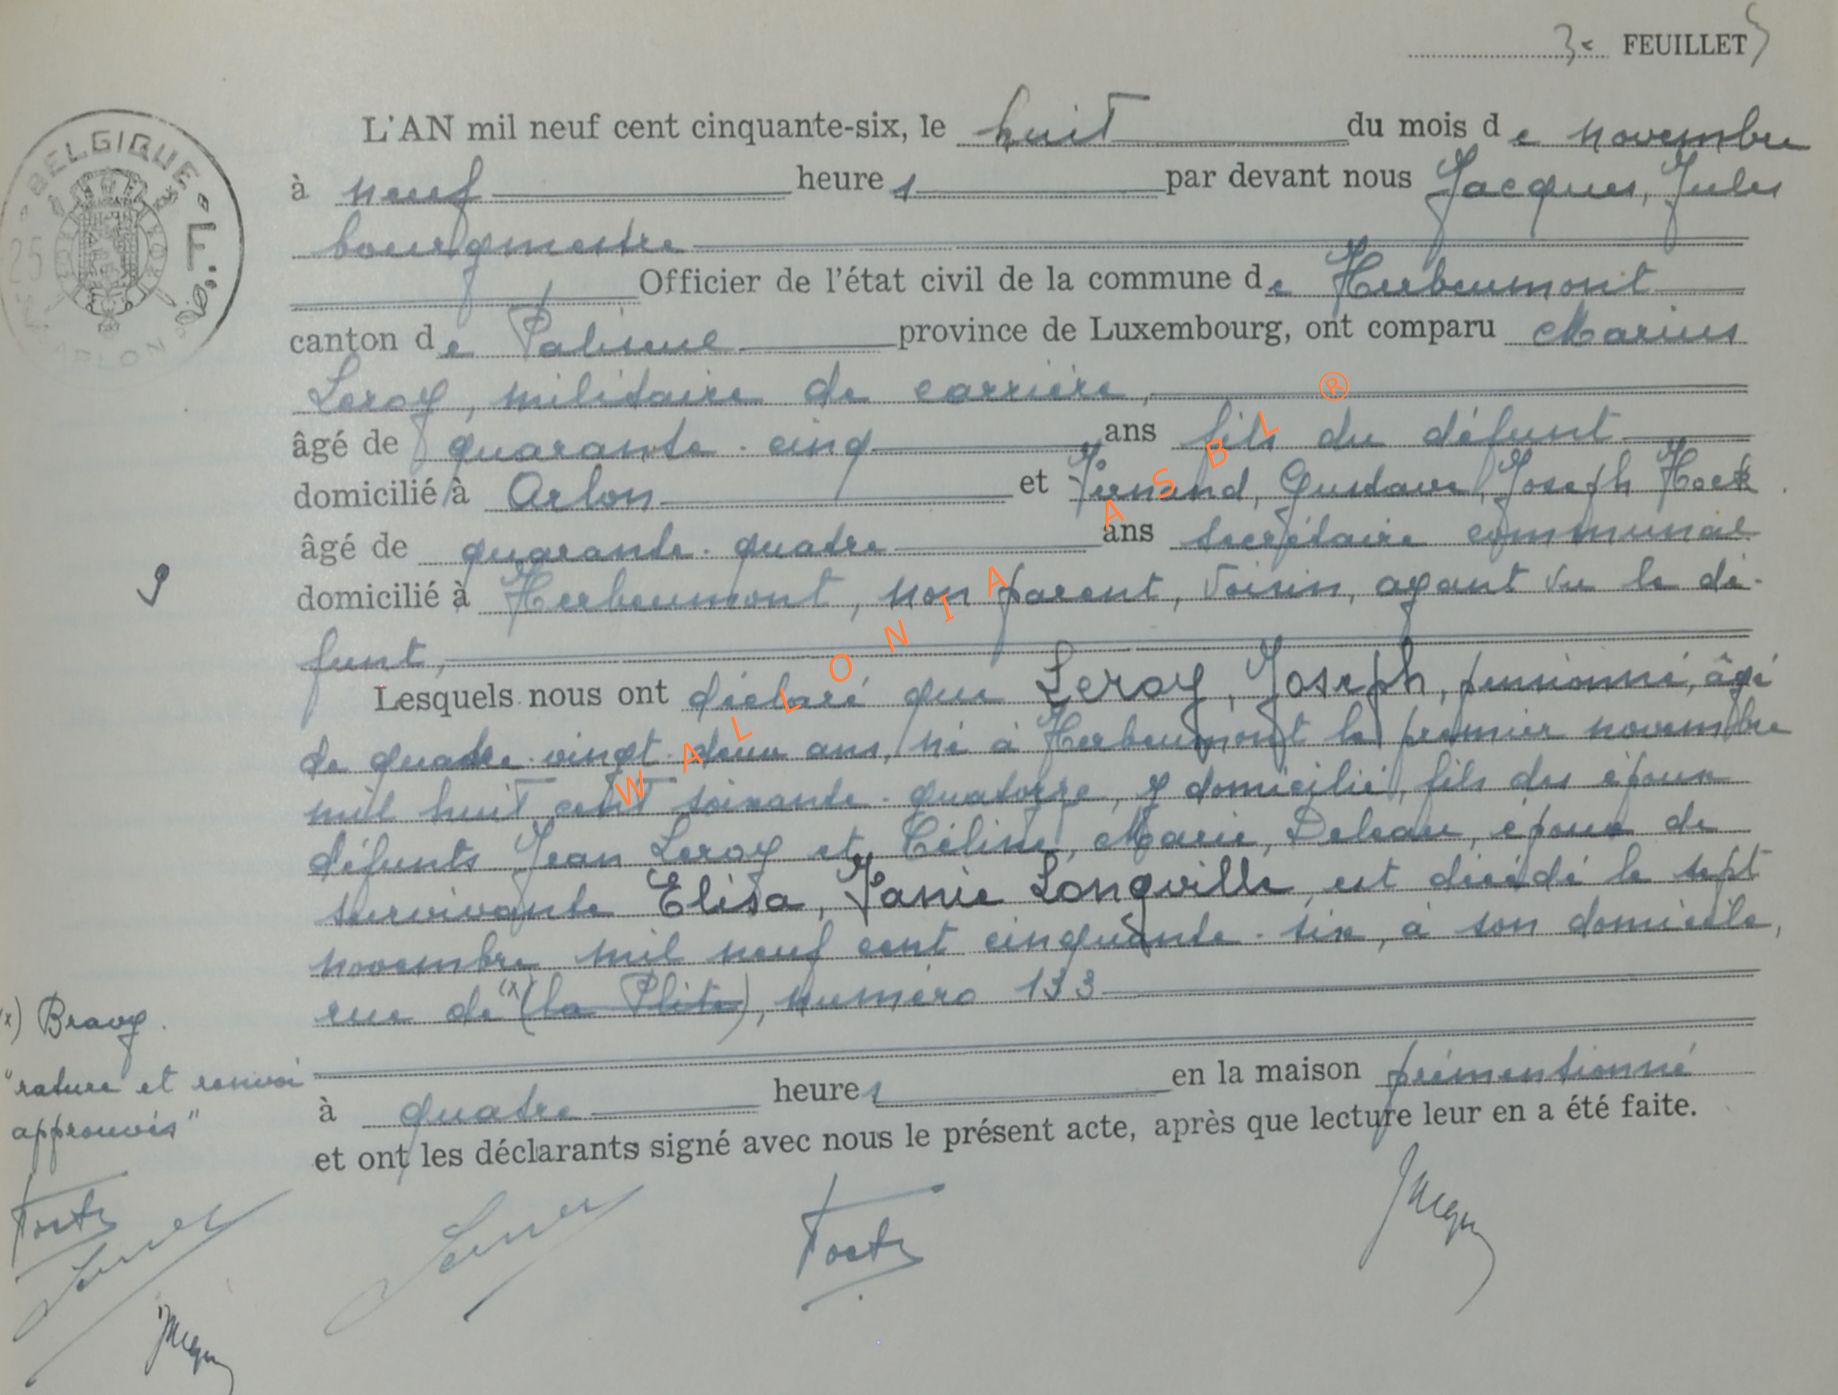 3e FEUILLET
BELGIQUE
ARLON
L'AN mil neuf cent cinquante-six, le huit du mois de novembre
à neuf heures par devant nous Jacques, Jules
bourgmestre
Officier de l'état civil de la commune de Herbeumont
canton de Paliseul province de Luxembourg, ont comparu Marius
Leroy, militaire de carrière,
âgé de quarante-cinq ans fils du défunt
domicilié à Arlon et Fernand, Gustave, Joseph
âgé de quarante-quatre ans secrétaire communal
domicilié à Herbeumont, non parent, voisin, ayant vu le dé-
funt,
Lesquels nous ont déclaré que Leroy, Joseph, pensionné, âgé
de quatre-vingt-deux ans, né à Herbeumont le premier novembre
mil huit cent soixante-quatorze, y domicilié, fils des époux
défunts Jean Leroy et Céline, Marie, époux de
survivante Elisa, Fanie Longville, est décédé le sept
novembre mil neuf cent cinquante-six, à son domicile,
rue de (x) (la Plite), numéro 133
à quatre heures en la maison prémentionné
et ont les déclarants signé avec nous le présent acte, après que lecture leur en a été faite.
(x) Bravy.
"rature et renvoi
approuvés"
WALLONIA ASBL ®